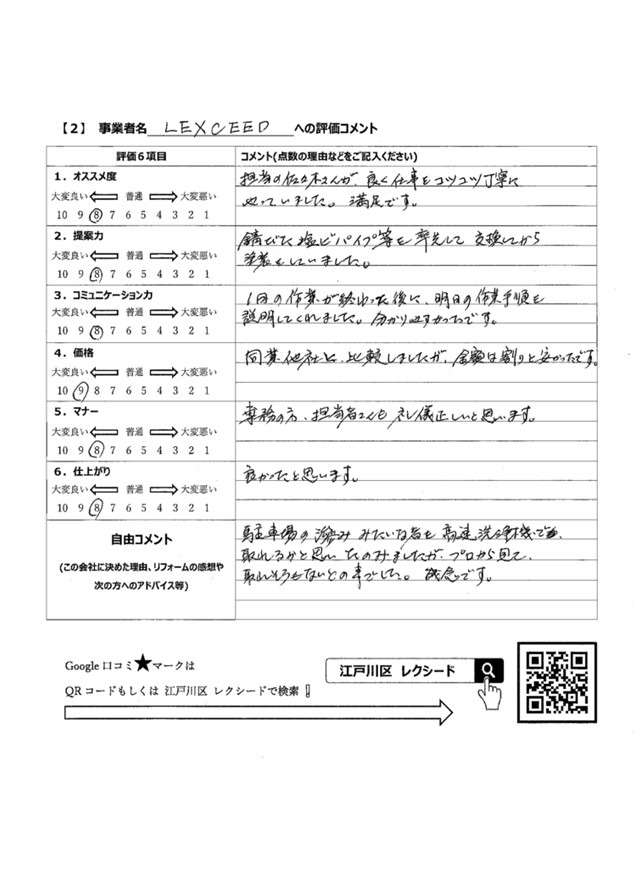 【2】 事業者名 LEXCEED への評価コメント
評価6項目 コメント(点数の理由などをご記入ください)
1. オススメ度
大変良い 普通 大変悪い
10 9 8 7 6 5 4 3 2 1
担当の佐々木さんが、良く仕事をコツコツ丁寧に
やっていました。満足です。
2. 提案力
大変良い 普通 大変悪い
10 9 8 7 6 5 4 3 2 1
錆びた塩ビパイプ等を率先して交換してから
塗装をしていました。
3. コミュニケーション力
大変良い 普通 大変悪い
10 9 8 7 6 5 4 3 2 1
1回の作業が終わった後に、明日の作業手順を
説明してくれました。分かりやすかったです。
4. 価格
大変良い 普通 大変悪い
10 9 8 7 6 5 4 3 2 1
同業他社と、比較しましたが、金額は割りと安かったです。
5. マナー
大変良い 普通 大変悪い
10 9 8 7 6 5 4 3 2 1
事務の方、担当者さんも礼儀正しいと思います。
6. 仕上がり
大変良い 普通 大変悪い
10 9 8 7 6 5 4 3 2 1
良かったと思います。
自由コメント
(この会社に決めた理由、リフォームの感想や
次の方へのアドバイス等)
駐車場の滲みみたいな者を高速洗浄機で
取れるかと思いたのみましたが、プロから見て、
取れそうもないとの事でした。残念です。
Google口コミ★マークは
QRコードもしくは 江戸川区 レクシードで検索!
江戸川区 レクシード